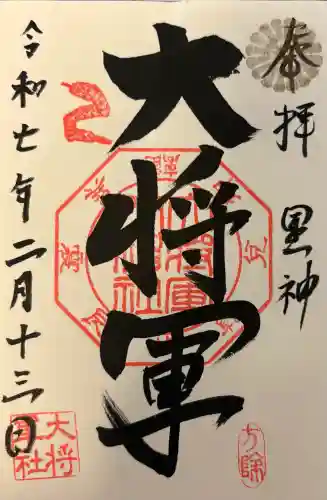 奉拝
星神
大将軍
令和七年二月十三日
大将
軍社
方除